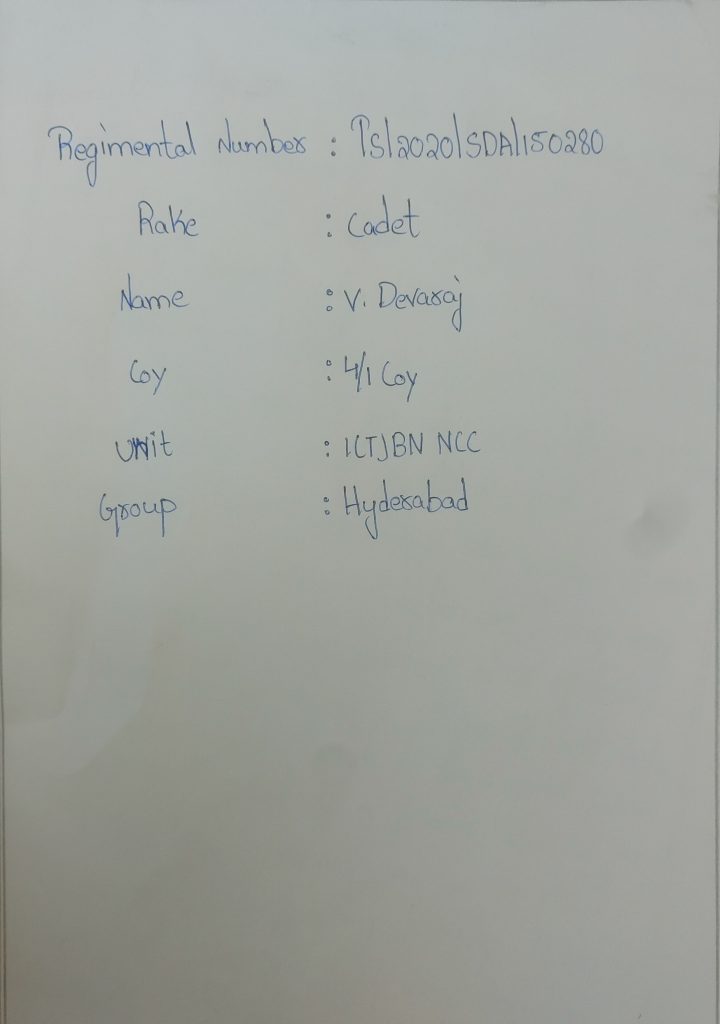 Regimental Number : TS/2020/SDA/150280
Rake : Cadet
Name : V. Devaraj
Coy : 4/1 Coy
Unit : 1(T)BN NCC
Group : Hyderabad